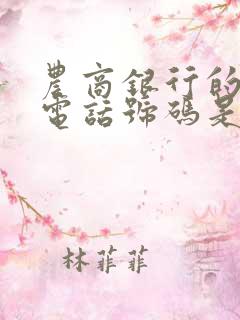 農商銀行的
電話號碼是
林菲菲